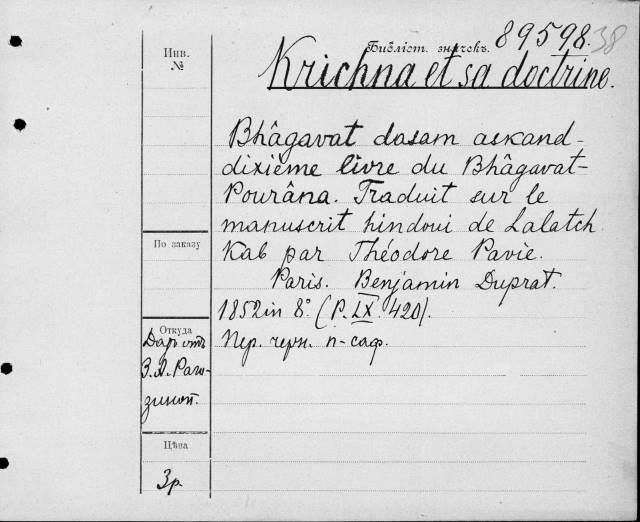 Библіот. значекъ. 89598 38
Инв.
№
Krichna et sa doctrine.
Bhâgavat dasam askand-
dixième livre du Bhâgavat-
Pourâna. Traduit sur le
manuscrit hindoui de Lalatch
Kab par Théodore Pavie.
Paris. Benjamin Duprat.
1852 in 8° (P. LX. 420).
Пер. черн. п-саф.
По заказу
Откуда
Даръ отъ
З. А. Раго-
зиной.
Цѣна
3р.